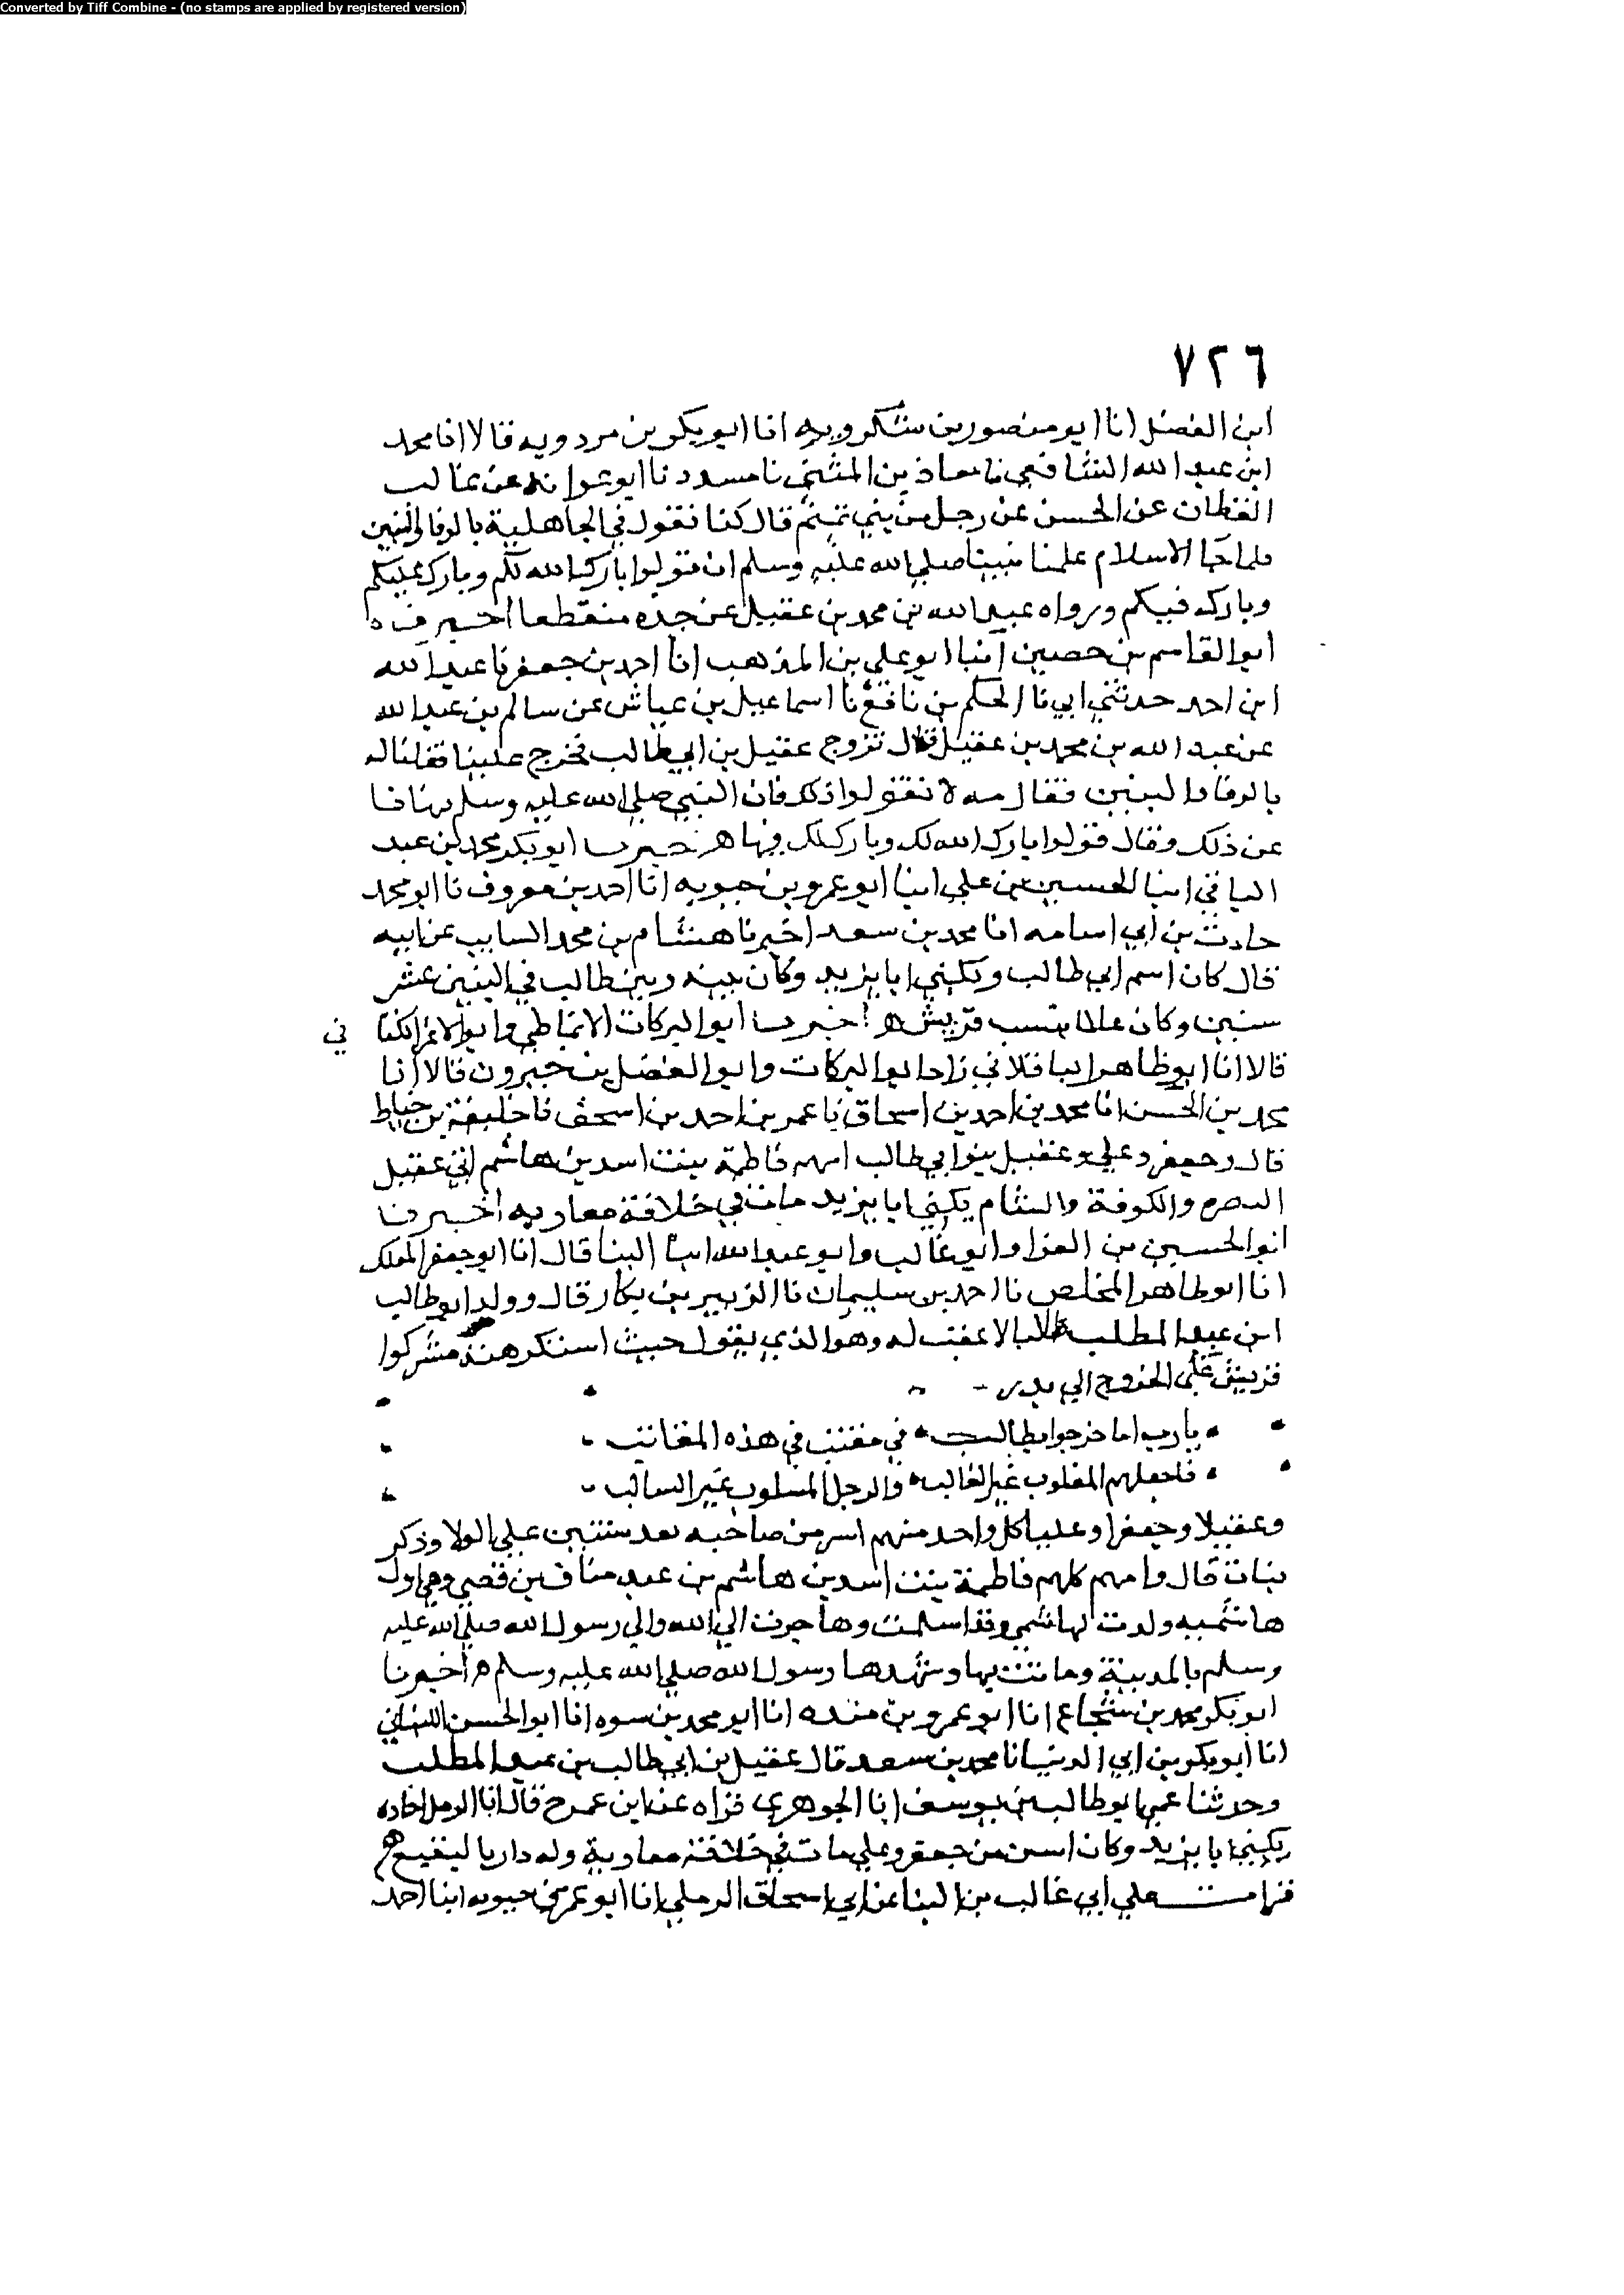 Converted by Tiff Combine - (no stamps are applied by registered version)
٧٢٦
ابن الفضل انا ابو منصور بن شكرويه انا ابو بكر بن مردويه قالا انا محمد
ابن عبد الله الشافعي نا معاذ بن المثني نا مسدد نا ابو عوانه عن غالب
القطان عن الحسن عن رجل من بني تميم قال كنا نقول في الجاهلية بالرفا والبنين
فلما جا الاسلام علمنا نبينا صلي الله عليه وسلم ان قولوا بارك الله لكم وبارك عليكم
وبارك فيكم ورواه عبد الله بن محمد بن عقيل عن جده منقطعا اخبرنا ه
ابو القاسم بن حصين انبا ابو علي بن المذهب انا احمد بن جعفر نا عبد الله
ابن احمد حدثني ابي نا الحكم بن نافع نا اسماعيل بن عياش عن سالم بن عبد الله
عن عبد الله بن محمد بن عقيل قال تزوج عقيل بن ابي طالب فخرج علينا فقلنا له
بالرفا والبنين فقال مه لا تقولوا ذلك فان النبي صلي الله عليه وسلم نهانا
عن ذلك وقال قولوا بارك الله لك وبارك لك فيها ه اخبرنا ابو بكر محمد بن عبد
الباقي انبا الحسين بن علي انبا ابو عمرو بن حبويه انا احمد بن معروف نا ابو محمد
حارث بن ابي اسامه انا محمد بن سعد اخبرنا هشام بن محمد السايب عن ابيه
قال كان اسم ابي طالب ويكني ابا يزيد وكان بينه وبين طالب في البنين عشر
سنين وكان عالما بنسب قريش ه اخبرنا ابو البركات الانماطي وابو الاعز الكفا في
قالا انا ابو طاهر الباقلاني زاد ابو البركات وابو الفضل بن خيرون قالا انا
محمد بن الحسن انا محمد بن احمد بن اسحاق نا عمر بن احمد بن اسحق نا خليفة بن خياط
قال وجعفر وعلي وعقيل بنو ابي طالب امهم فاطمة بنت اسد بن هاشم اتي عقيل
البصره والكوفة والشام يكني ابا يزيد مات في خلافة معاويه اخبرنا
ابو الحسين بن الفرا وابو غالب وابو عبد الله ابنا البنا قال انا ابو جعفر المملك
انا ابو طاهر المخلص نا احمد بن سليمان نا الزبير بن بكار قال وولد ابو طالب
ابن عبد المطلب طالبا لا عقب له وهو الذي يقول حيث استكرهته مشركوا
قريش علي الخروج الي بدر
يا رب اما خرجوا بطالب في مقنب في هذه المقانب
فاجعلهم المغلوب غير الغالب والرجل المسلوب غير السالب
وعقيلا وجعفرا وعليا كل واحد منهم اسن من صاحبه بعد سنتين علي الولا وذكر
بنات قال وامهم كلهم فاطمة بنت اسد بن هاشم بن عبد مناف بن قصي وهي اول
هاشميه ولدت لهاشمي وقد اسلمت وهاجرت الي الله والي رسول الله صلي الله عليه
وسلم بالمدينة وماتت بها وشهدها رسول الله صلي الله عليه وسلم ه اخبرنا
ابو بكر محمد بن شجاع انا ابو عمرو بن منده انا ابو محمد بن سوه انا ابو الحسن اللنباني
انا ابو بكر بن ابي الدنيا نا محمد بن سعد قال عقيل بن ابي طالب بن عبد المطلب
وحدثنا عمي ابو طالب بن يوسف انا الجوهري قراه عن ابن
يكني ابا يزيد وكان اسن من جعفر وعلي مات في خلافة معاوية وله دار بالبقيع ه
قرات علي ابي غالب بن البنا عن ابي اسحاق الرملي انا ابو عمر بن حبويه ابنا احمد